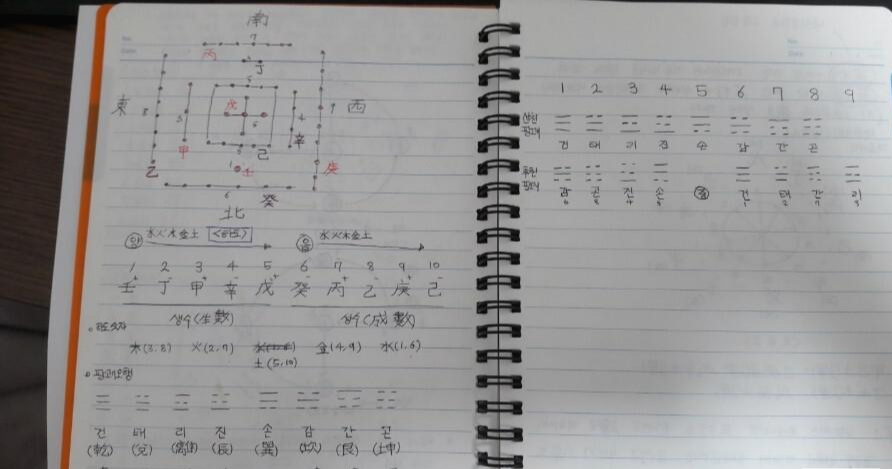 南
7
丙
2
丁
5
東
8
3
戊
5
4
9
西
辛
甲
10
己
乙
1
壬
庚
6
癸
北
양 水火木金土 <하도> 음 水火木金土
1 2 3 4 5 6 7 8 9 10
壬+ 丁- 甲+ 辛- 戊+ 癸- 丙+ 乙- 庚+ 己-
생수(生數) 성수(成數)
木(3,8) 火(2,7) 金(4,9) 水(1,6)
土(5,10)
팔괘오행
☰ ☱ ☲ ☳ ☴ ☵ ☶ ☷
건 태 리 진 손 감 간 곤
(乾) (兌) (離) (辰) (巽) (坎) (艮) (坤)
1 2 3 4 5 6 7 8 9
선천
팔괘
건 태 리 진 손 감 간 곤
후천
팔괘
감 곤 진 손 중 건 태 간 리